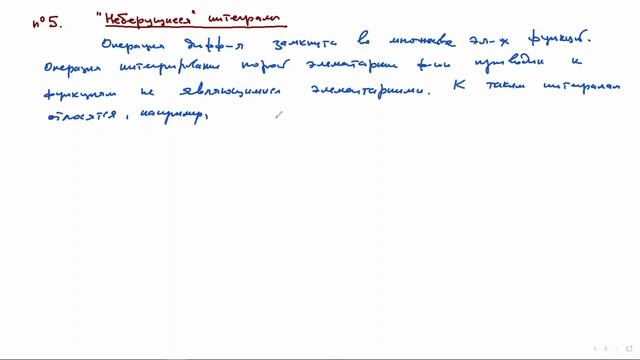 п°5. "Неберущиеся" интегралы
Операция дифф-я замкнута во множестве эл-х функций.
Операция интегрирования порой элементарные ф-ии приводит к
функциям не являющимися элементарными. К таким интегралам
относятся, например,